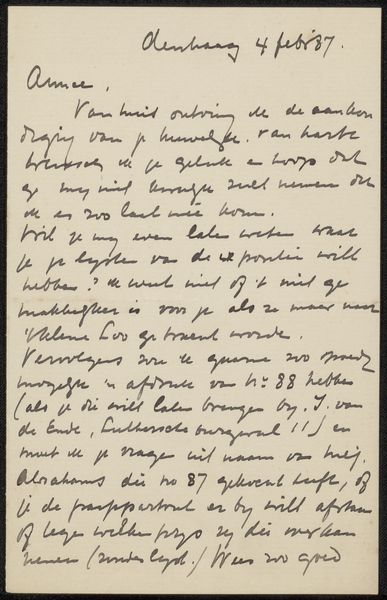 den haag 4 febr 87.
Amice,
Van huis ontving ik de aankon
diging van je huwelijk. Van harte
wensch ik je geluk en hoop dat
ge mij niet kwalijk zult nemen dat
ik er zoo laat mee kom.
Wil je mij even laten weten waar
je je lijsten van de portretten wilt
hebben? Ik weet niet of 't niet ge
makkelijker is voor je als ze maar naar
't Kleine Loo gebracht worden.
Vervolgens zou ik gaarne zoo spoedig
mogelijk 'n afdruk van No. 88 hebben
(als je die wilt laten brengen bij J. van
de Ende, Luthersche burgwal 11) en
moet ik je vragen uit naam van mej.
Abrahams die no 87 gekocht heeft, of
je de passepartout er bij wilt afstaan
of tegen welken prijs zij die over kan
nemen (zonder lijst.) Wees zoo goed